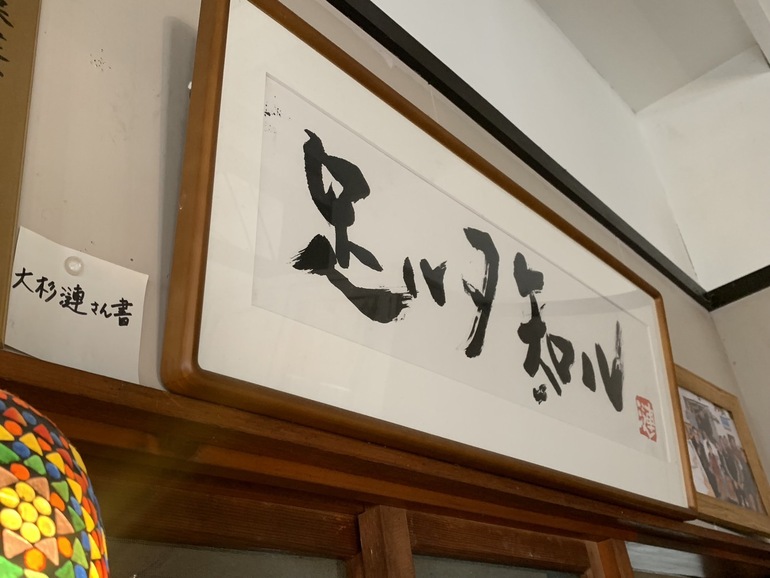 足ルヲ知ル
大杉漣さん書